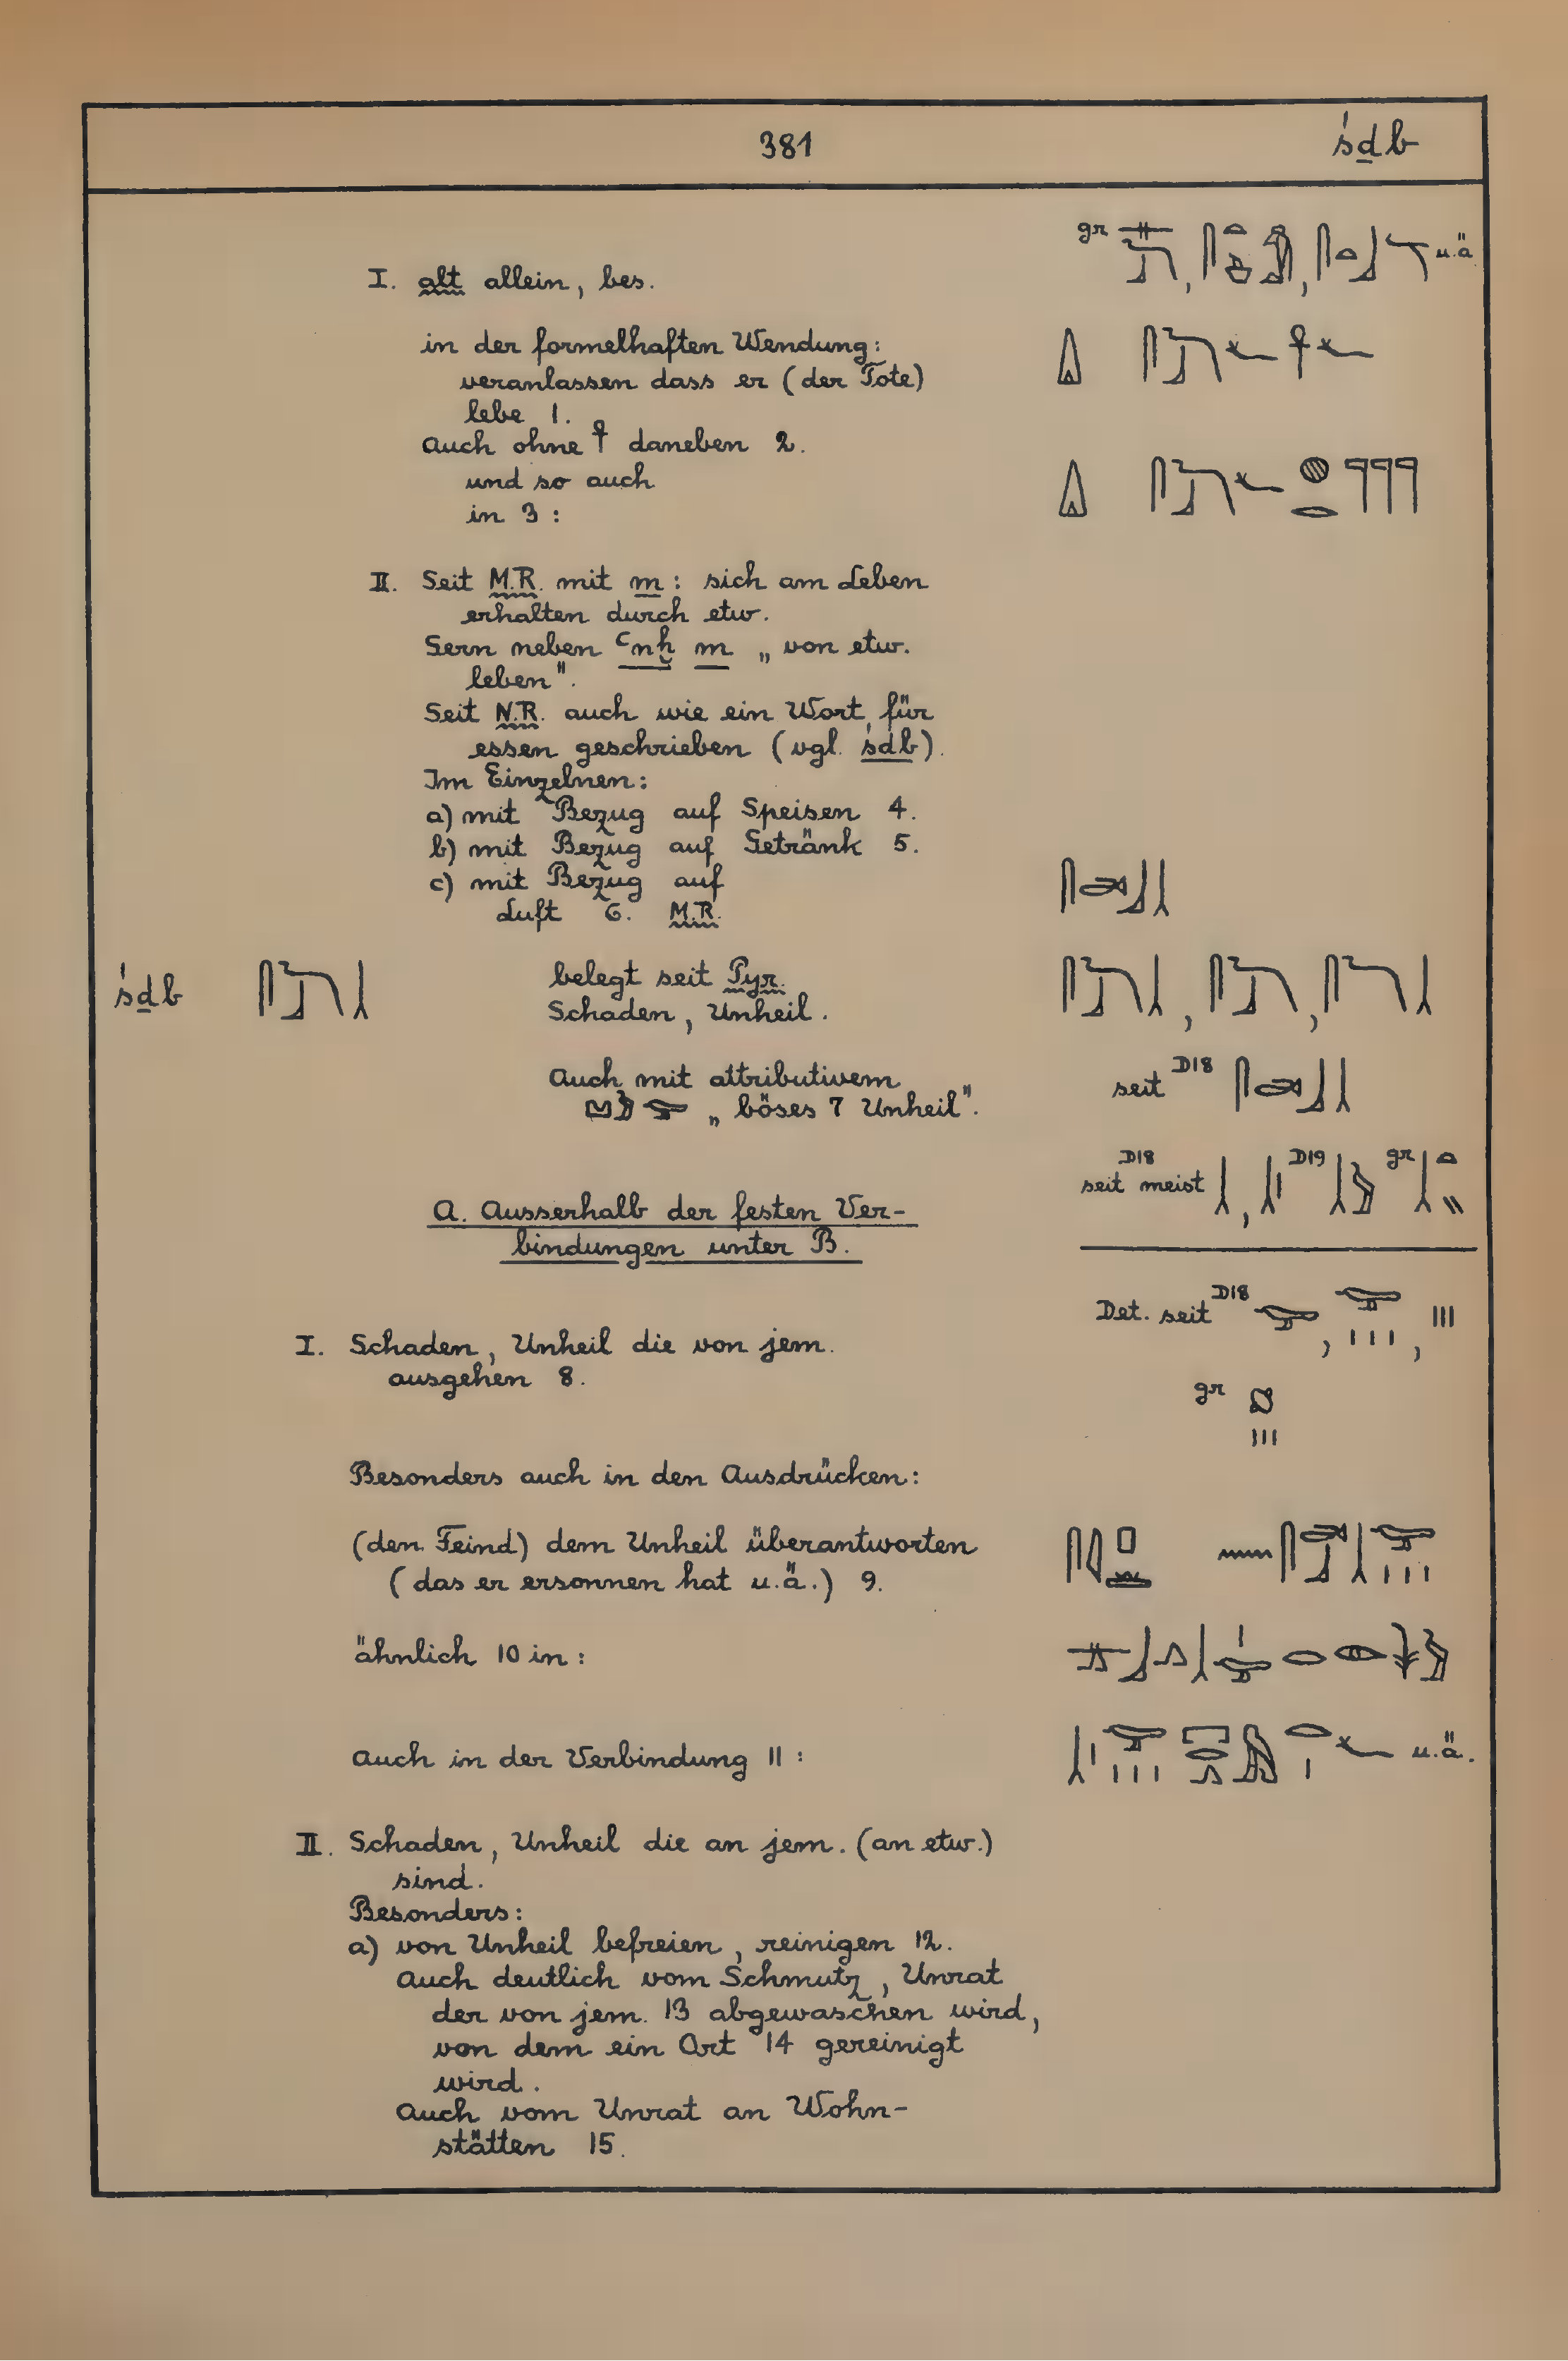 381
śḏb
gr
u.ä
I. alt allein, bes.
in der formelhaften Wendung:
veranlassen dass er (der Tote)
lebe 1.
Auch ohne 𓋹 daneben 2.
und so auch
in 3:
II. Seit M.R. mit m: sich am Leben
erhalten durch etw.
Gern neben ꜥnḫ m „von etw.
leben".
Seit N.R. auch wie ein Wort für
essen geschrieben (vgl. śdb).
Im Einzelnen:
a) mit Bezug auf Speisen 4.
b) mit Bezug auf Getränk 5.
c) mit Bezug auf
Luft 6. M.R.
śḏb
belegt seit Pyr.
Schaden, Unheil.
Auch mit attributivem
„böses 7 Unheil".
seit D18
D18 seit meist
D19
gr
A. Ausserhalb der festen Ver-
bindungen unter B.
Det. seit D18
gr
I. Schaden, Unheil die von jem.
ausgehen 8.
Besonders auch in den Ausdrücken:
(den Feind) dem Unheil überantworten
(das er ersonnen hat u.ä.) 9.
ähnlich 10 in:
Auch in der Verbindung 11:
u.ä.
II. Schaden, Unheil die an jem. (an etw.)
sind.
Besonders:
a) von Unheil befreien, reinigen 12.
Auch deutlich vom Schmutz, Unrat
der von jem. 13 abgewaschen wird,
von dem ein Ort 14 gereinigt
wird.
Auch vom Unrat an Wohn-
stätten 15.